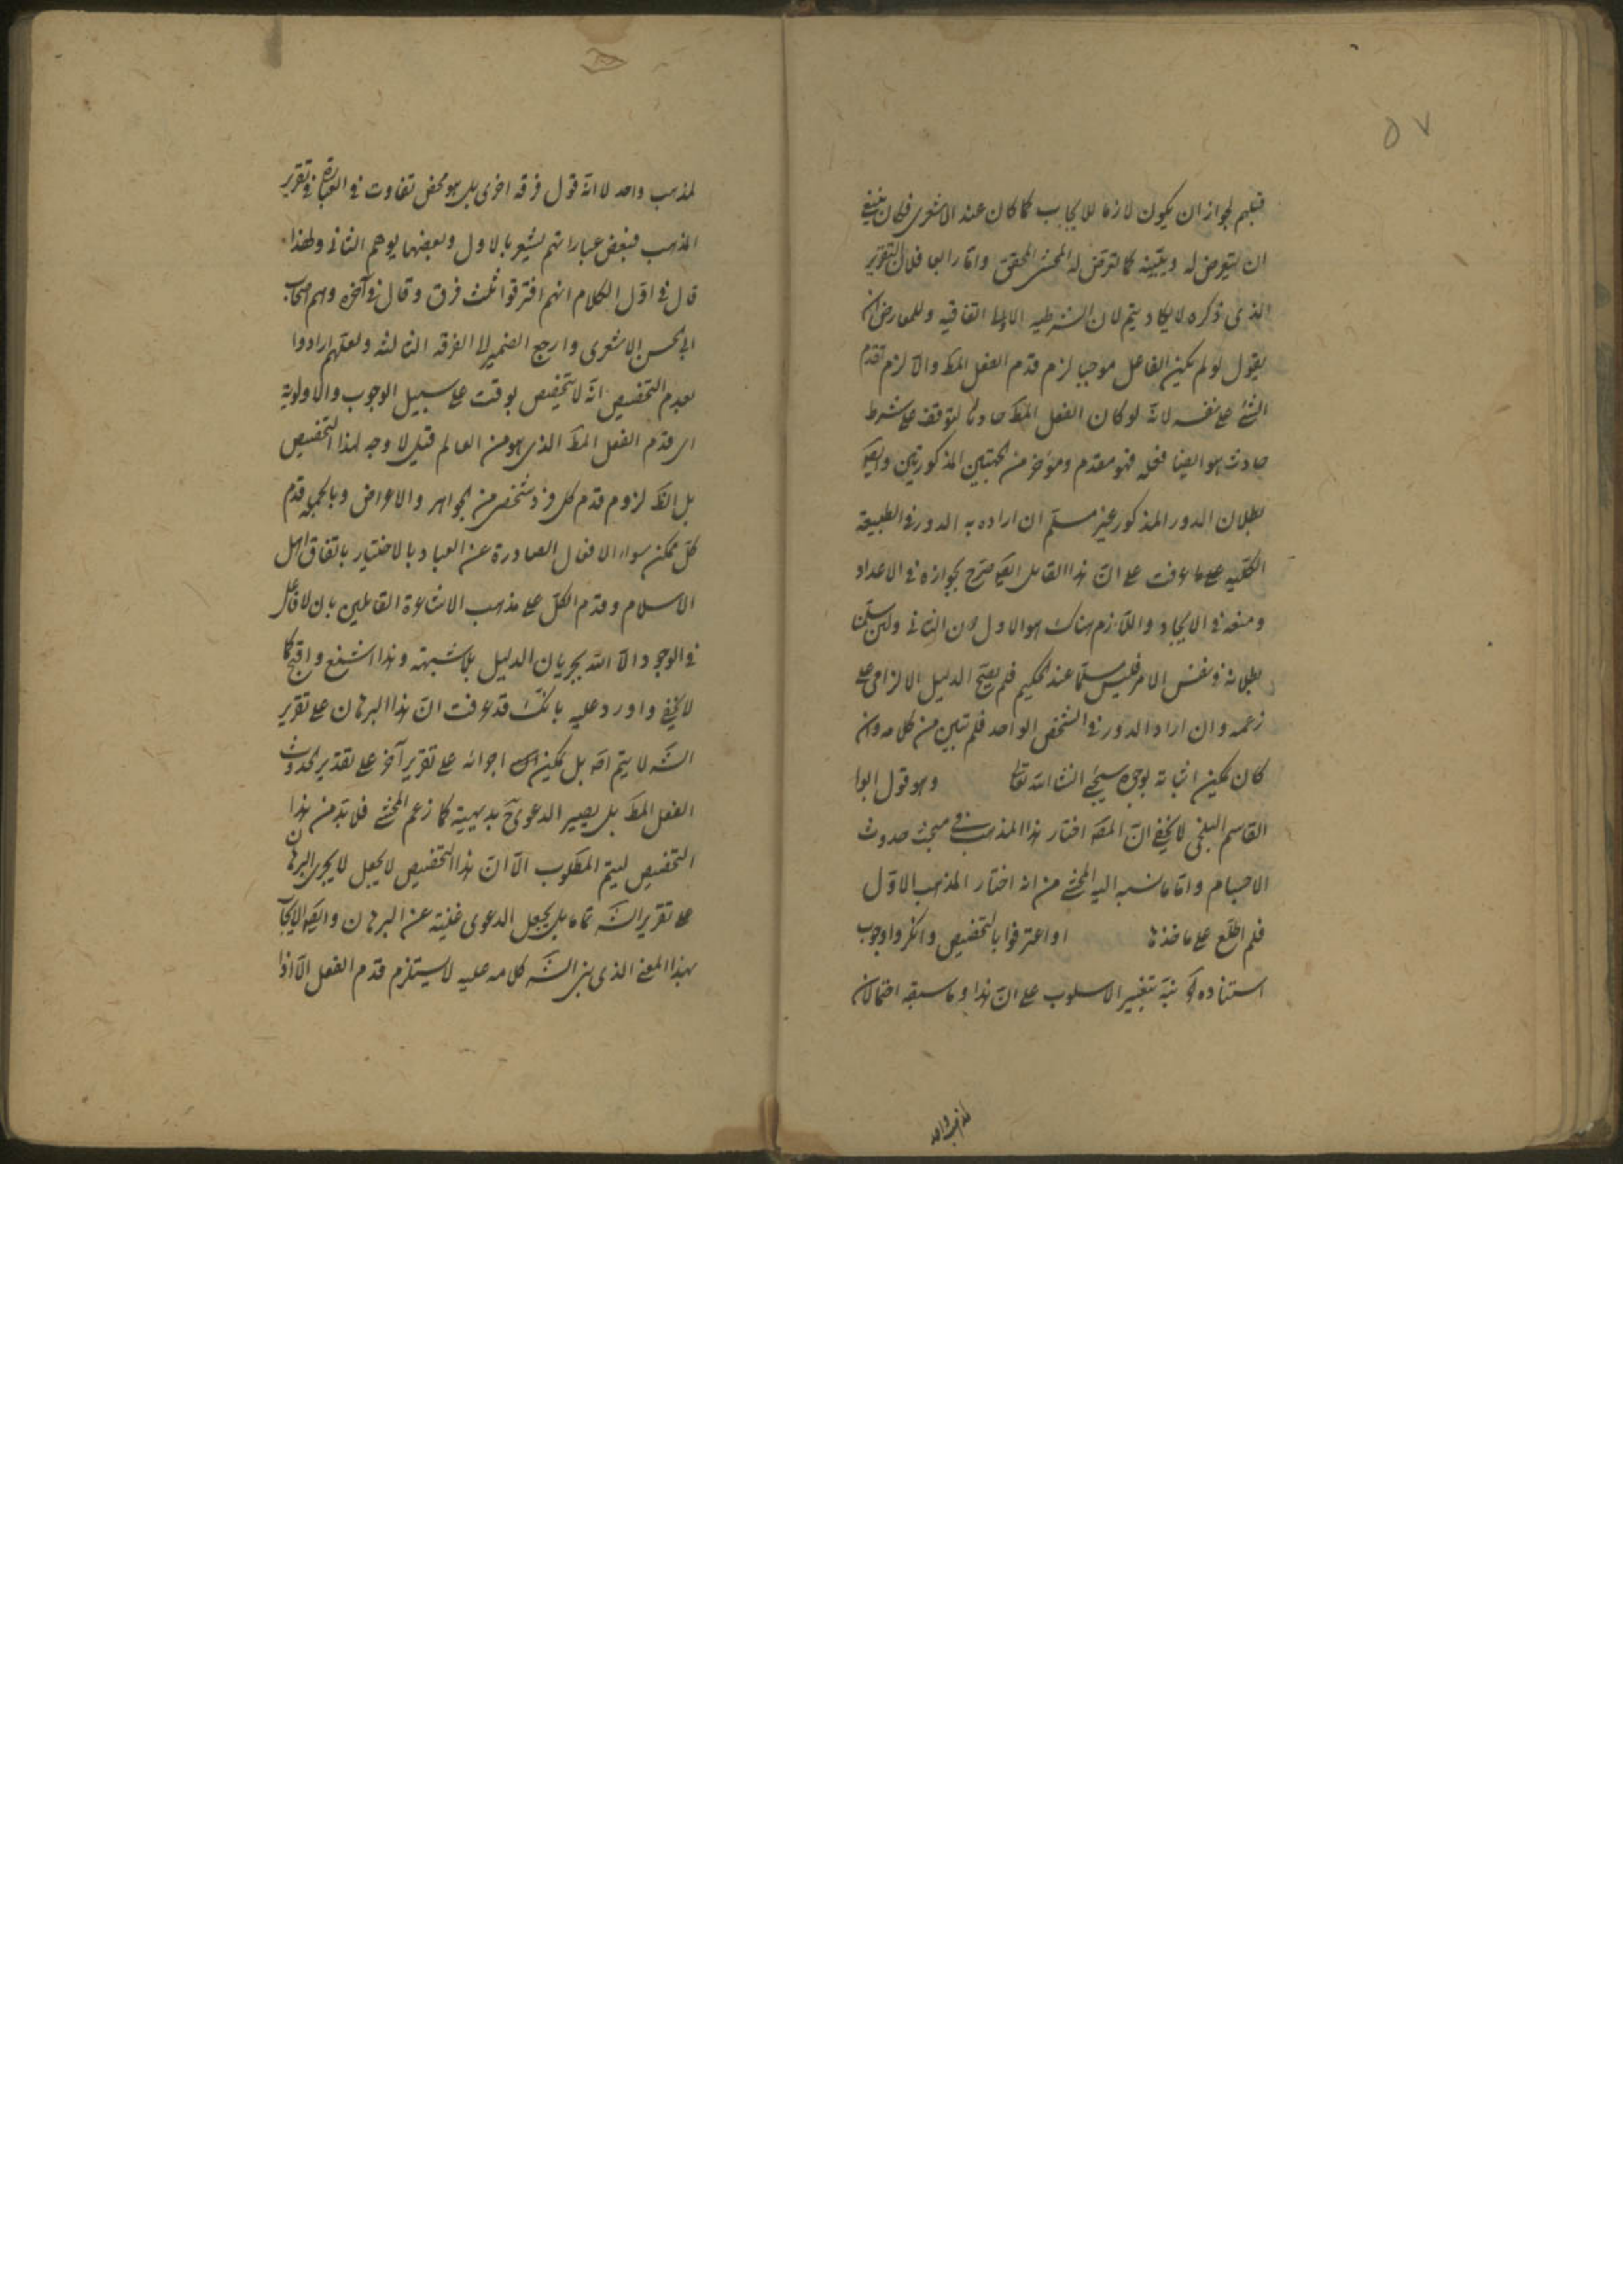 ٥٧
قبلهم لجواز ان يكون لازما للايجاب كما كان عند الاشعرى فكان ينبغى
ان يتعرض له ويثبته كما تعرض له المحشى المحقق واما رابعا فلان التقرير
الذى ذكره لا يكاد يتم لان الشرطيه الاولى اتفاقيه وللمعارض ان
يقول لو لم يكن الفاعل موجبا لزم قدم الفعل المط والا لزم تقدم
الشئ على نفسه لانه لو كان الفعل المط حادثا لتوقف على شرط
حادث هو ايضا فعله فهو مقدم ومؤخر من الجهتين المذكورتين وايض
بطلان الدور المذكور غير مسلم ان اراد به الدور فى الطبيعة
الكليه على ما عرفت على ان هذا القايل ايض صرح بجوازه فى الاعداد
ومنعه فى الايجاد واللازم هناك هو الاول دون الثانى ولئن سلمنا
بطلانه فى نفس الامر فليس مسلما عند الحكيم فلم يصح الدليل الالزامى على
زعمه وان اراد الدور فى الشخص الواحد فلم تبين من كلامه وان
كان يمكن اثباته بوجه سيجئ انشا الله تعالى وهو قول ابوا
القاسم البلخى لا يخفى ان المص اختار هذا المذهب فى مبحث حدوث
الاجسام واما ما نسبه اليه المحشى من انه اختار المذهب الاول
فلم اطلع على ماخذها او اعترفوا بالتخصيص وانكروا وجوب
استناده لو نبه بتغيير الاسلوب على ان هذا وما سبقه احتمالان
لمذهب واحد
لمذهب واحد لا انه قول فرقه اخرى بل هو محض تفاوت فى العبارة فى تقرير
المذهب فبعض عباراتهم يشعر بالاول وبعضها يوهم الثانى ولهذا
قال فى اول الكلام انهم افترقوا ثلث فرق وقال فى آخره وهم اصحاب
ابى الحسن الاشعرى وارجع الضمير الى الفرقه الثالثه ولعلهم ارادوا
بعدم التخصيص انه لا تخصيص بوقت على سبيل الوجوب والاولوية
اى قدم الفعل المط الذى هو من العالم قيل لا وجه لهذا التخصيص
بل الظ لزوم قدم كل فرد شخصى من الجواهر والاعراض وبالجملة قدم
كل ممكن سواء الافعال الصادرة عن العباد بالاختيار باتفاق اهل
الاسلام وقدم الكل على مذهب الاشاعرة القايلين بان لا فاعل
فى الوجود الا الله بجريان الدليل بلا شبهة وهذا اشنع واقبح كما
لا يخفى واورد عليه بانك قد عرفت ان هذا البرهان على تقرير
الشـ لا يتم اصـ بل يمكن اجرائه على تقرير آخر على تقدير حدوث
الفعل المط بل يصير الدعوى ح بديهية كما زعم المحشى فلا بد من هذا
التخصيص ليتم المطلوب الا ان هذا التخصيص لا يجعل لا يجرى البرهان
على تقرير الشـ تاما بل يجعل الدعوى غنيته عن البرهان وايض الايجاب
بهذا المعنى الذى بنى الشـ كلامه عليه لا يستلزم قدم الفعل الا اذا